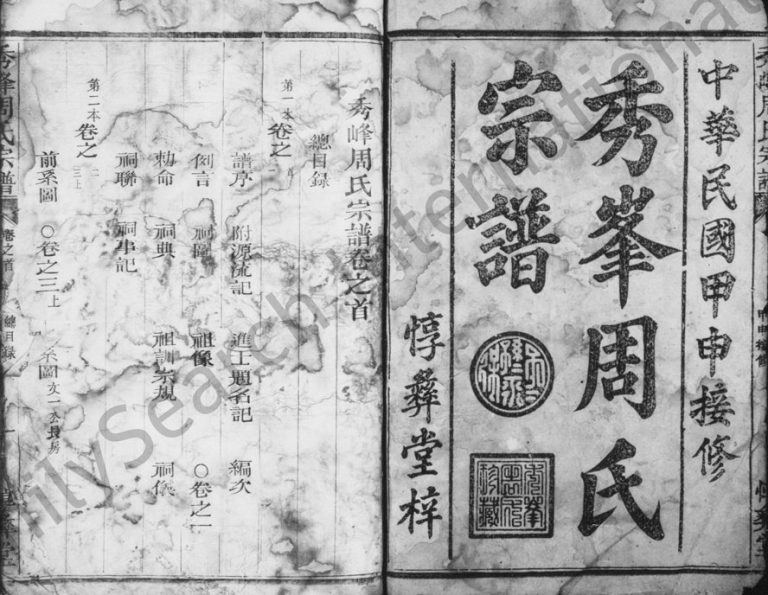 中華民國甲申接修
秀峯周氏
宗譜
秀峯周氏珍藏
惇彝堂梓
秀峰周氏宗譜卷之首
總目錄
第一本卷之首
譜序 附源流記 進士題名記 編次
例言 祠圖 祖像 ○卷之一
勅命 祠典 祖訓宗規 祠俵
祠聯 祠事記
第二本卷之二 三上
前系圖 ○卷之三上 系圖文一公長房
秀峰周氏宗譜 卷之首 總目錄 一 惇彝堂
FamilySearch International